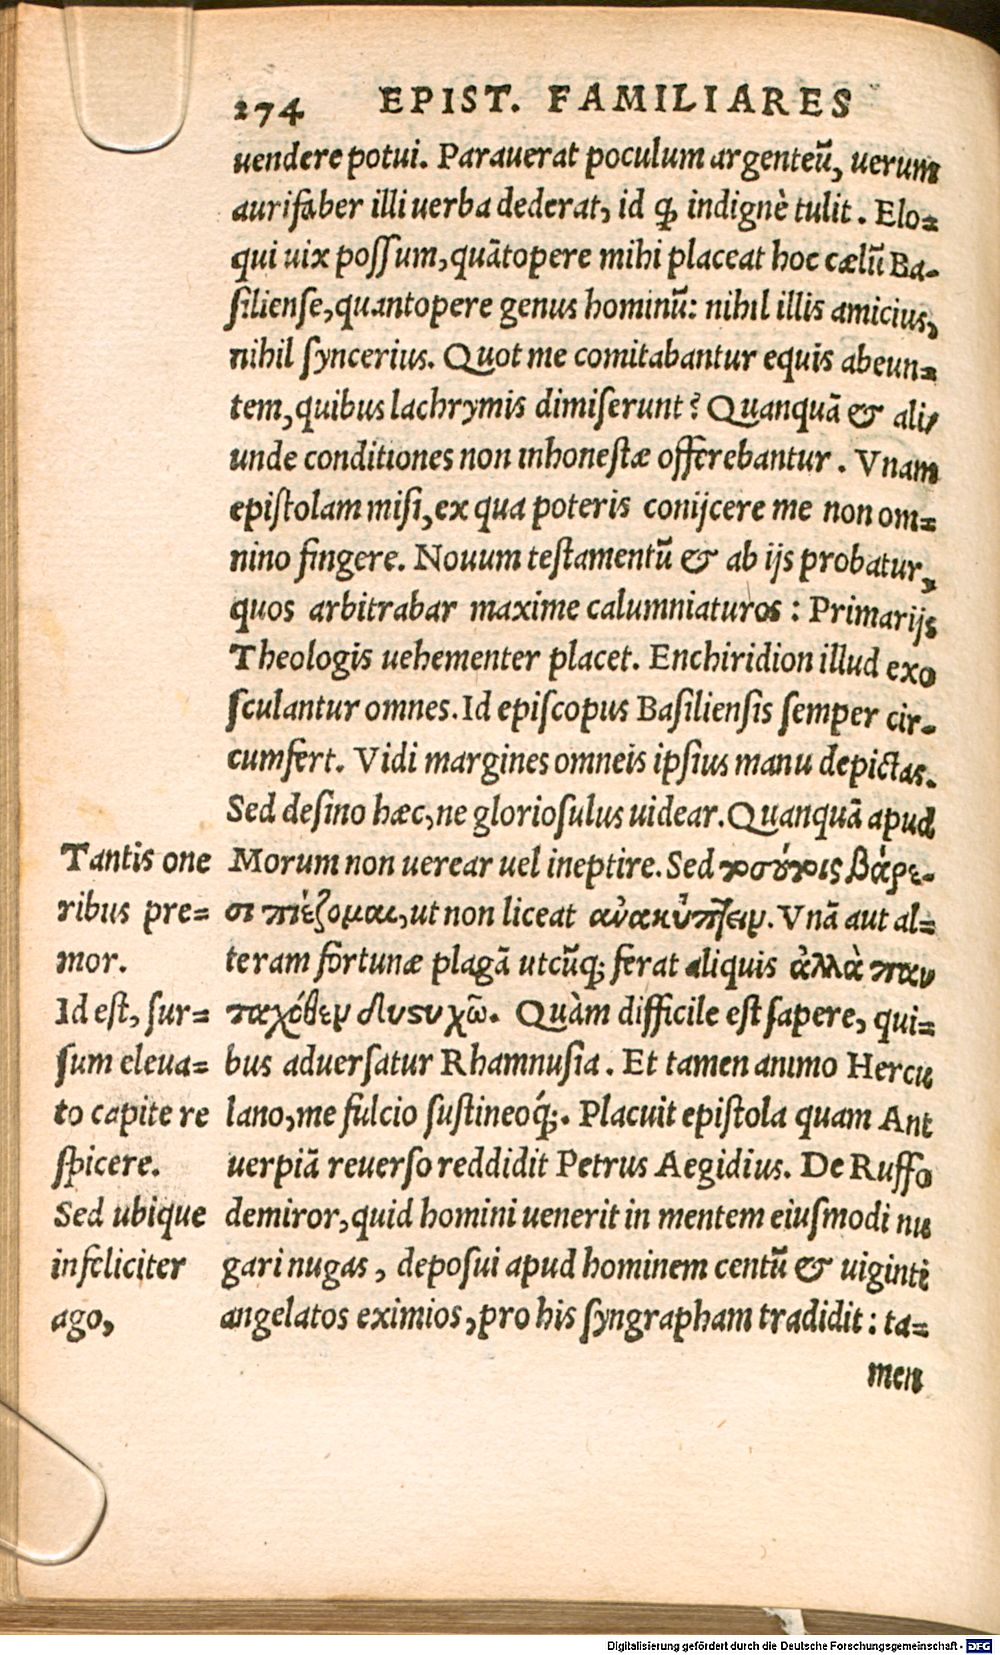 274 EPIST. FAMILIARES
uendere potui. Parauerat poculum argenteũ, uerum
aurifaber illi uerba dederat, id ꝙ indignè tulit. Elo=
qui uix possum, quãtopere mihi placeat hoc cælũ Ba-
siliense, quantopere genus hominũ: nihil illis amicius,
nihil syncerius. Quot me comitabantur equis abeun=
tem, quibus lachrymis dimiserunt? Quanquã & ali/
unde conditiones non inhonestæ offerebantur. Vnam
epistolam misi, ex qua poteris conijcere me non om=
nino fingere. Nouum testamentũ & ab ijs probatur,
quos arbitrabar maxime calumniaturos: Primarijs
Theologis uehementer placet. Enchiridion illud exo
sculantur omnes. Id episcopus Basiliensis semper cir-
cumfert. Vidi margines omneis ipsius manu depictas.
Sed desino hæc, ne gloriosulus uidear. Quanquã apud
Morum non uerear uel ineptire. Sed τοσούτοις βάρε-
σι πιέζομαι, ut non liceat ἀνακύπτειν. Vnã aut al=
teram fortunæ plagã utcũq; ferat aliquis ἀλλὰ παν
ταχόθεν δυσυχῶ. Quàm difficile est sapere, qui=
bus aduersatur Rhamnusia. Et tamen animo Hercu
lano, me fulcio sustineoq́;. Placuit epistola quam Ant
uerpiã reuerso reddidit Petrus Aegidius. De Ruffo
demiror, quid homini uenerit in mentem eiusmodi nu
gari nugas, deposui apud hominem centũ & uiginti
angelatos eximios, pro his syngrapham tradidit: ta=
men
Tantis one
ribus pre=
mor.
Id est, sur=
sum eleua=
to capite re
spicere.
Sed ubique
infeliciter
ago,
Digitalisierung gefördert durch die Deutsche Forschungsgemeinschaft - DFG